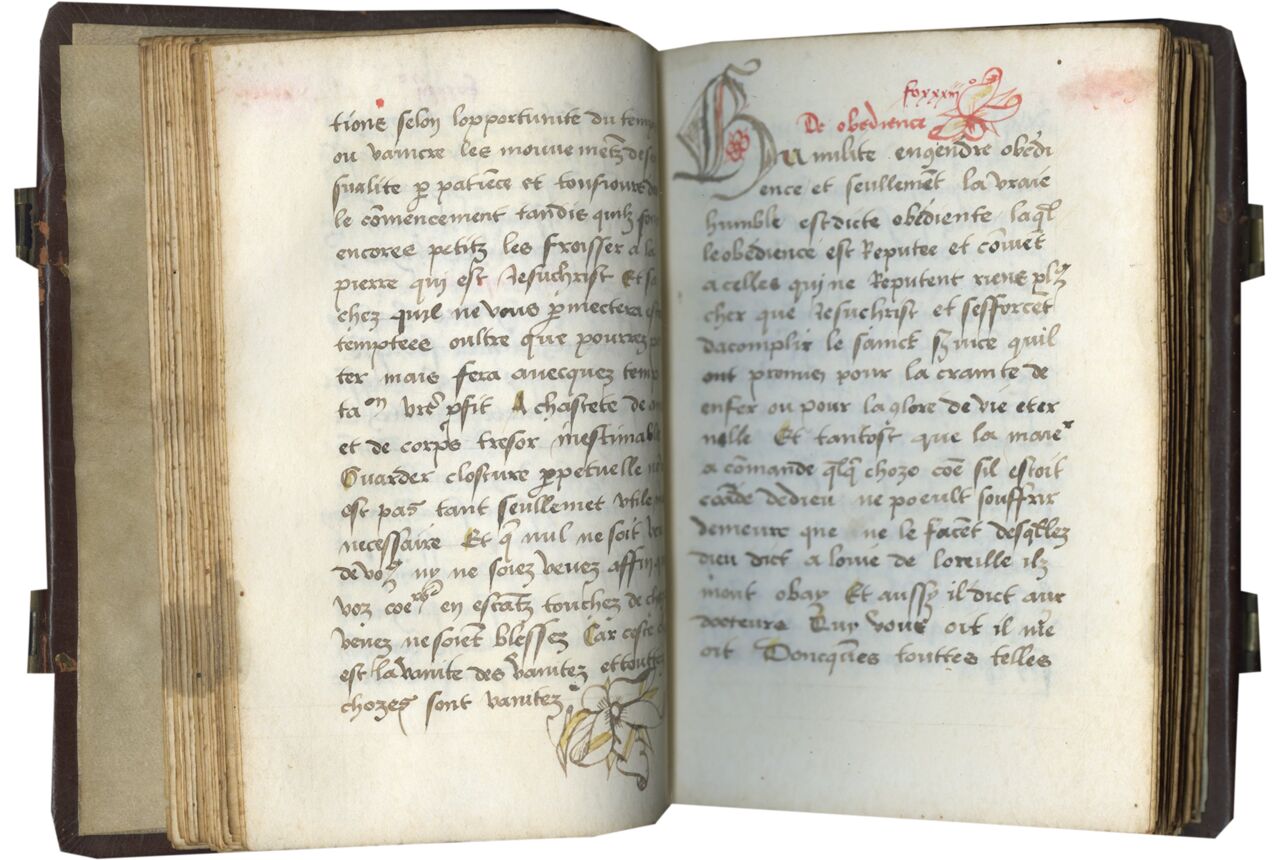 tions selon lopportunite du temp
ou vaincre les mouvemetz de se
sualite p patiece et tousiours de
le comencement tandis quilz so
encores petitz les froisser a la
pierre qui est Jesuchrist Et sa
chez quil ne vous pmectera est
temptees oultre que pourrez po
ter mais fera avecquez temp
ta on vre pfit A chastete de
et de corps tresor inestimable
Guarder closture ppetuelle
est pas tant seullemet utile
necessaire Et q nul ne soit
de vo9 ny ne soiez venez affin
voz en touchez de
venez ne soiet blessez Car ceste
est la vanite des vanitez et touttes
chozes sont vanitez
fo xxxiij o
De obedience
Humilite engendre obedi
ence et seullemet la vraie
humble est dicte obediente laql
le obedience est Reputee et covet
a celles qui ne Reputent riens pl9
cher que Jesuchrist et sefforcet
dacomplir le sainct svice quil
ont promis pour la crainte de
enfer ou pour la glore de vie eter
nelle Et tantost que la maier
a comande qlq choze coe sil estoit
coade de dieu ne poeult souffrir
demeure que ne le facet desqllez
dieu dict a louie de loreille ilz
mont obay Et aussy il dict aux
docteurs Quy vous oit il me
oit Doncques touttes telles